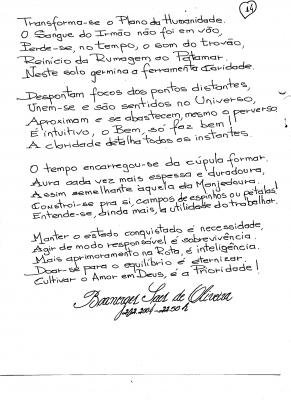 14
Transforma-se o Plano da Humanidade.
O Sangue do Irmão não foi em vão,
Perde-se, no tempo, o som do trovão,
Reinício da Rumagem ao Patamar,
Neste solo germina a ferramenta Caridade.
Despontam focos dos pontos distantes,
Unem-se e são sentidos no Universo,
Aproximam e se abastecem, mesmo o perverso
É intuitivo, o Bem, só faz bem!
A claridade detalha todos os instantes.
O tempo encarregou-se da cúpula formar.
Aura cada vez mais espessa e duradoura,
Assim semelhante aquela da Manjedoura,
Constroi-se pra si, campos de espinhos ou pétalas!
Entende-se, ainda mais, a utilidade do trabalhar.
Manter o estado conquistado é necessidade,
Agir de modo responsável é sobrevivência.
Mais aprimoramento na Rota, é inteligência.
Doar-se para o equilíbrio é eternizar.
Cultivar o Amor em Deus, é a Prioridade!
Boanerges Saes de Oliveira
2001 - 22:50 h